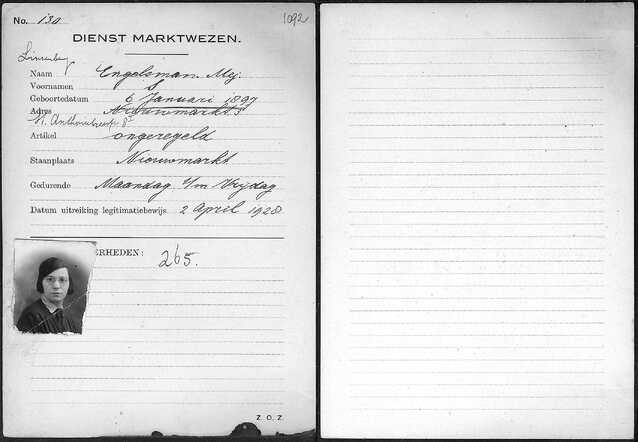 No. 130 1092
DIENST MARKTWEZEN.
Naam Engelsman. Mej.
Voornamen S
Geboortedatum 6 Januari 1897
Adres Nieuwmarkt 5
St. Anthoniebreestr. 8
Artikel ongeregeld
Staanplaats Nieuwmarkt
Gedurende Maandag t/m Vrijdag
Datum uitreiking legitimatiebewijs. 2 April 1928
ERHEDEN: 265.
Z. O. Z.